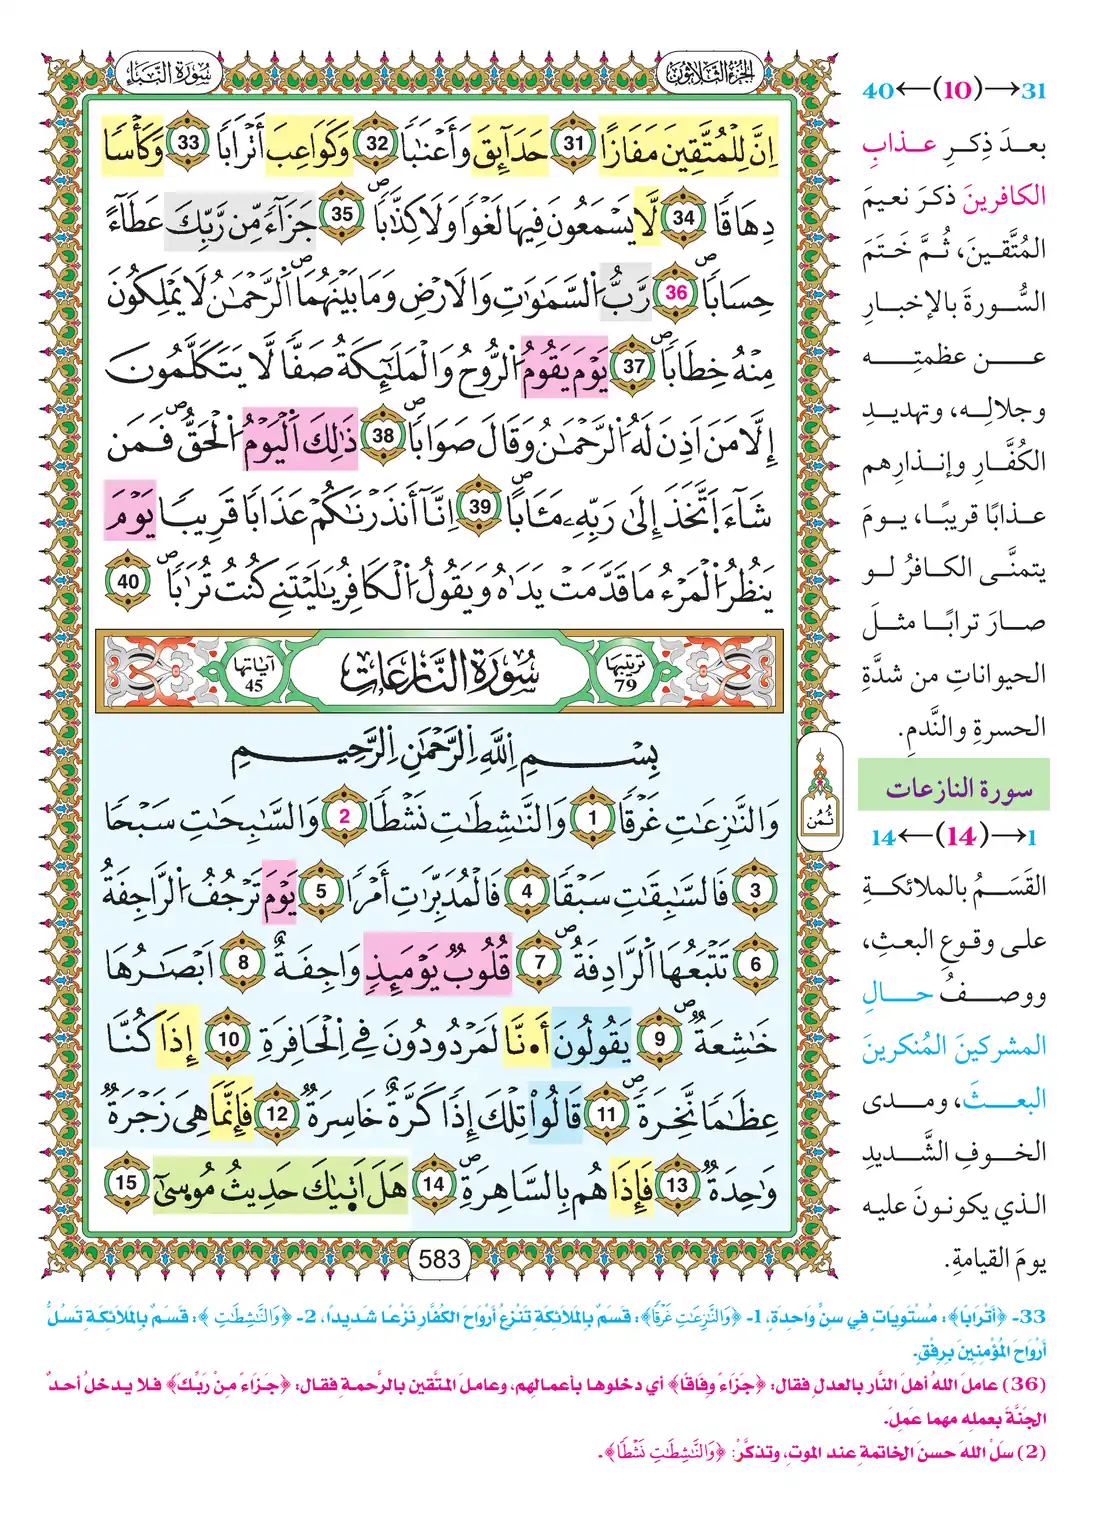 الجزء الثلاثون
سورة النبإ
إِنَّ لِلْمُتَّقِينَ مَفَازًا 31 حَدَآئِقَ وَأَعْنَٰبًا 32 وَكَوَاعِبَ أَتْرَابًا 33 وَكَأْسًا
دِهَاقًا 34 لَّا يَسْمَعُونَ فِيهَا لَغْوًا وَلَا كِذَّٰبًا 35 جَزَآءً مِّن رَّبِّكَ عَطَآءً
حِسَابًا 36 رَّبُّ السَّمَٰوَٰتِ وَالَارْضِ وَمَا بَيْنَهُمَا الرَّحْمَٰنُ لَا يَمْلِكُونَ
مِنْهُ خِطَابًا 37 يَوْمَ يَقُومُ الرُّوحُ وَالْمَلَٰٓئِكَةُ صَفًّا لَّا يَتَكَلَّمُونَ
إِلَّا مَنَ اَذِنَ لَهُ الرَّحْمَٰنُ وَقَالَ صَوَابًا 38 ذَٰلِكَ اَلْيَوْمُ الْحَقُّ فَمَن
شَآءَ اَتَّخَذَ إِلَىٰ رَبِّهِۦ مَـَٔابًا 39 اِنَّآ أَنذَرْنَٰكُمْ عَذَابًا قَرِيبًا يَوْمَ
يَنظُرُ الْمَرْءُ مَا قَدَّمَتْ يَدَٰهُ وَيَقُولُ الْكَافِرُ يَٰلَيْتَنِے كُنتُ تُرَٰبًا 40
ترتيبها 79
سُورَةُ النَّازِعَاتِ
آياتها 45
بِسْمِ اِللَّهِ اِلرَّحْمَٰنِ اِلرَّحِيمِ
وَالنَّٰزِعَٰتِ غَرْقًا 1 وَالنَّٰشِطَٰتِ نَشْطًا 2 وَالسَّٰبِحَٰتِ سَبْحًا
3 فَالسَّٰبِقَٰتِ سَبْقًا 4 فَالْمُدَبِّرَٰتِ أَمْرًا 5 يَوْمَ تَرْجُفُ الرَّاجِفَةُ
6 تَتْبَعُهَا اَلرَّادِفَةُ 7 قُلُوبٌ يَوْمَئِذٍ وَاجِفَةٌ 8 اَبْصَٰرُهَا
خَٰشِعَةٌ 9 يَقُولُونَ أَ۟نَّا لَمَرْدُودُونَ فِے اِلْحَافِرَةِ 10 إِذَا كُنَّا
عِظَٰمًا نَّخِرَةً 11 قَالُوا۟ تِلْكَ إِذًا كَرَّةٌ خَاسِرَةٌ 12 فَإِنَّمَا هِىَ زَجْرَةٌ
وَٰحِدَةٌ 13 فَإِذَا هُم بِالسَّاهِرَةِ 14 هَلَ اَتٜىٰكَ حَدِيثُ مُوسٜىٰٓ 15
583
ثُمُن
31→(10)←40
بعدَ ذِكرِ عذابِ
الكافرينَ ذكرَ نعيمَ
المُتَّقينَ، ثُمَّ خَتَمَ
السُّورةَ بالإخبارِ
عن عظمتِه
وجلالِه، وتهديدِ
الكُفَّارِ وإنذارِهم
عذابًا قريبًا، يومَ
يتمنَّى الكافرُ لو
صارَ ترابًا مثلَ
الحيواناتِ من شدَّةِ
الحسرةِ والنَّدمِ.
سورة النازعات
1→(14)←14
القَسَمُ بالملائكةِ
على وقوعِ البعثِ،
ووصفُ حالِ
المشركينَ المُنكرينَ
البعثَ، ومدى
الخوفِ الشَّديدِ
الذي يكونونَ عليه
يومَ القيامةِ.
33- ﴿أَتْرَابًا﴾: مُسْتَوِيَاتٍ فِي سِنٍّ وَاحِدَةٍ، 1- ﴿وَالنَّٰزِعَٰتِ غَرْقًا﴾: قَسَمٌ بِالمَلَائِكَةِ تَنْزِعُ أَرْوَاحَ الكُفَّارِ نَزْعًا شَدِيدًا، 2- ﴿وَالنَّٰشِطَٰتِ﴾: قَسَمٌ بِالمَلَائِكَةِ تَسُلُّ
أَرْوَاحَ المُؤْمِنِينَ بِرِفْقٍ.
(36) عاملَ اللهُ أهلَ النَّارِ بالعدلِ فقال: ﴿جَزَاءً وِفَاقًا﴾ أي دخلوها بأعمالِهم، وعاملَ المتَّقين بالرَّحمةِ فقال: ﴿جَزَاءً مِنْ رَبِّكَ﴾ فلا يدخلُ أحدٌ
الجنَّةَ بعملِه مهما عَمِلَ.
(2) سَلْ اللهَ حسنَ الخاتمةِ عند الموتِ، وتذكَّرْ: ﴿وَالنَّٰشِطَٰتِ نَشْطًا﴾.